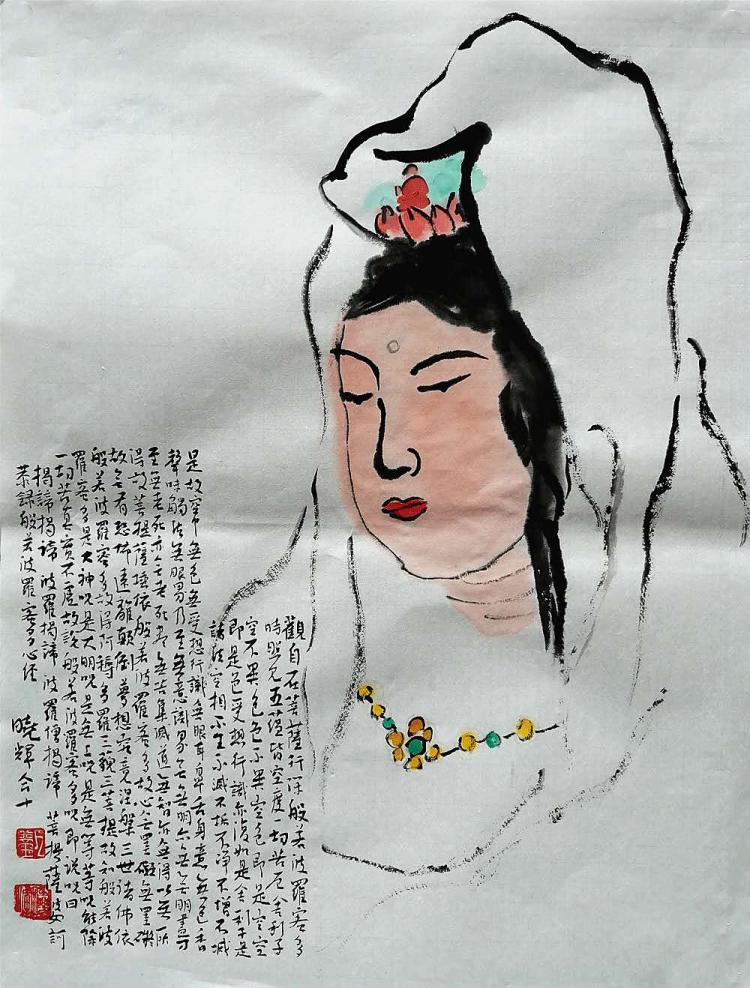 觀自在菩薩行深般若波羅蜜多
時照見五蘊皆空度一切苦厄舍利子
空不異色色不異空色即是空空
即是色受想行識亦復如是舍利子是
諸法空相不生不滅不垢不淨不增不減
是故空中無色無受想行識無眼耳鼻舌身意無色香
聲味觸法無眼界乃至無意識界無無明亦無無明盡乃
至無老死亦無老死盡無苦集滅道無智亦無得以無所
得故菩提薩埵依般若波羅蜜多故心無罣礙無罣礙
故無有恐怖遠離顛倒夢想究竟涅槃三世諸佛依
般若波羅蜜多故得阿耨多羅三藐三菩提故知般若波
羅蜜多是大神咒是大明咒是無上咒是無等等咒能除
一切苦真實不虛故說般若波羅蜜多咒即說咒曰
揭諦揭諦波羅揭諦波羅僧揭諦菩提薩婆訶
恭録般若波羅蜜多心經
曉輝合十